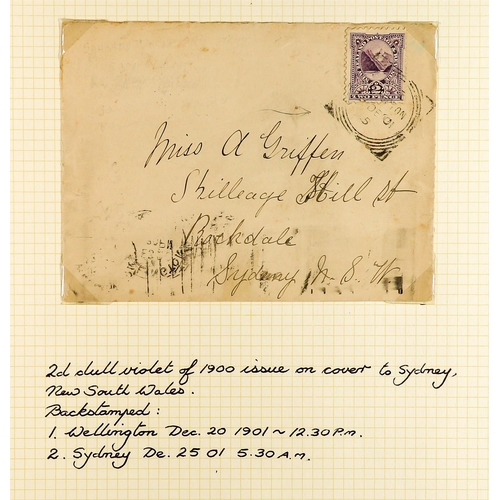 TWO PENCE
2
Miss A Griffen
Skilleage Hill St
Rockdale
Sydney N. S. W
2d dull violet of 1900 issue on cover to Sydney,
New South Wales.
Backstamped:
1. Wellington Dec. 20 1901 ~ 12.30 P.m.
2. Sydney De. 25 01 5.30 A.m.